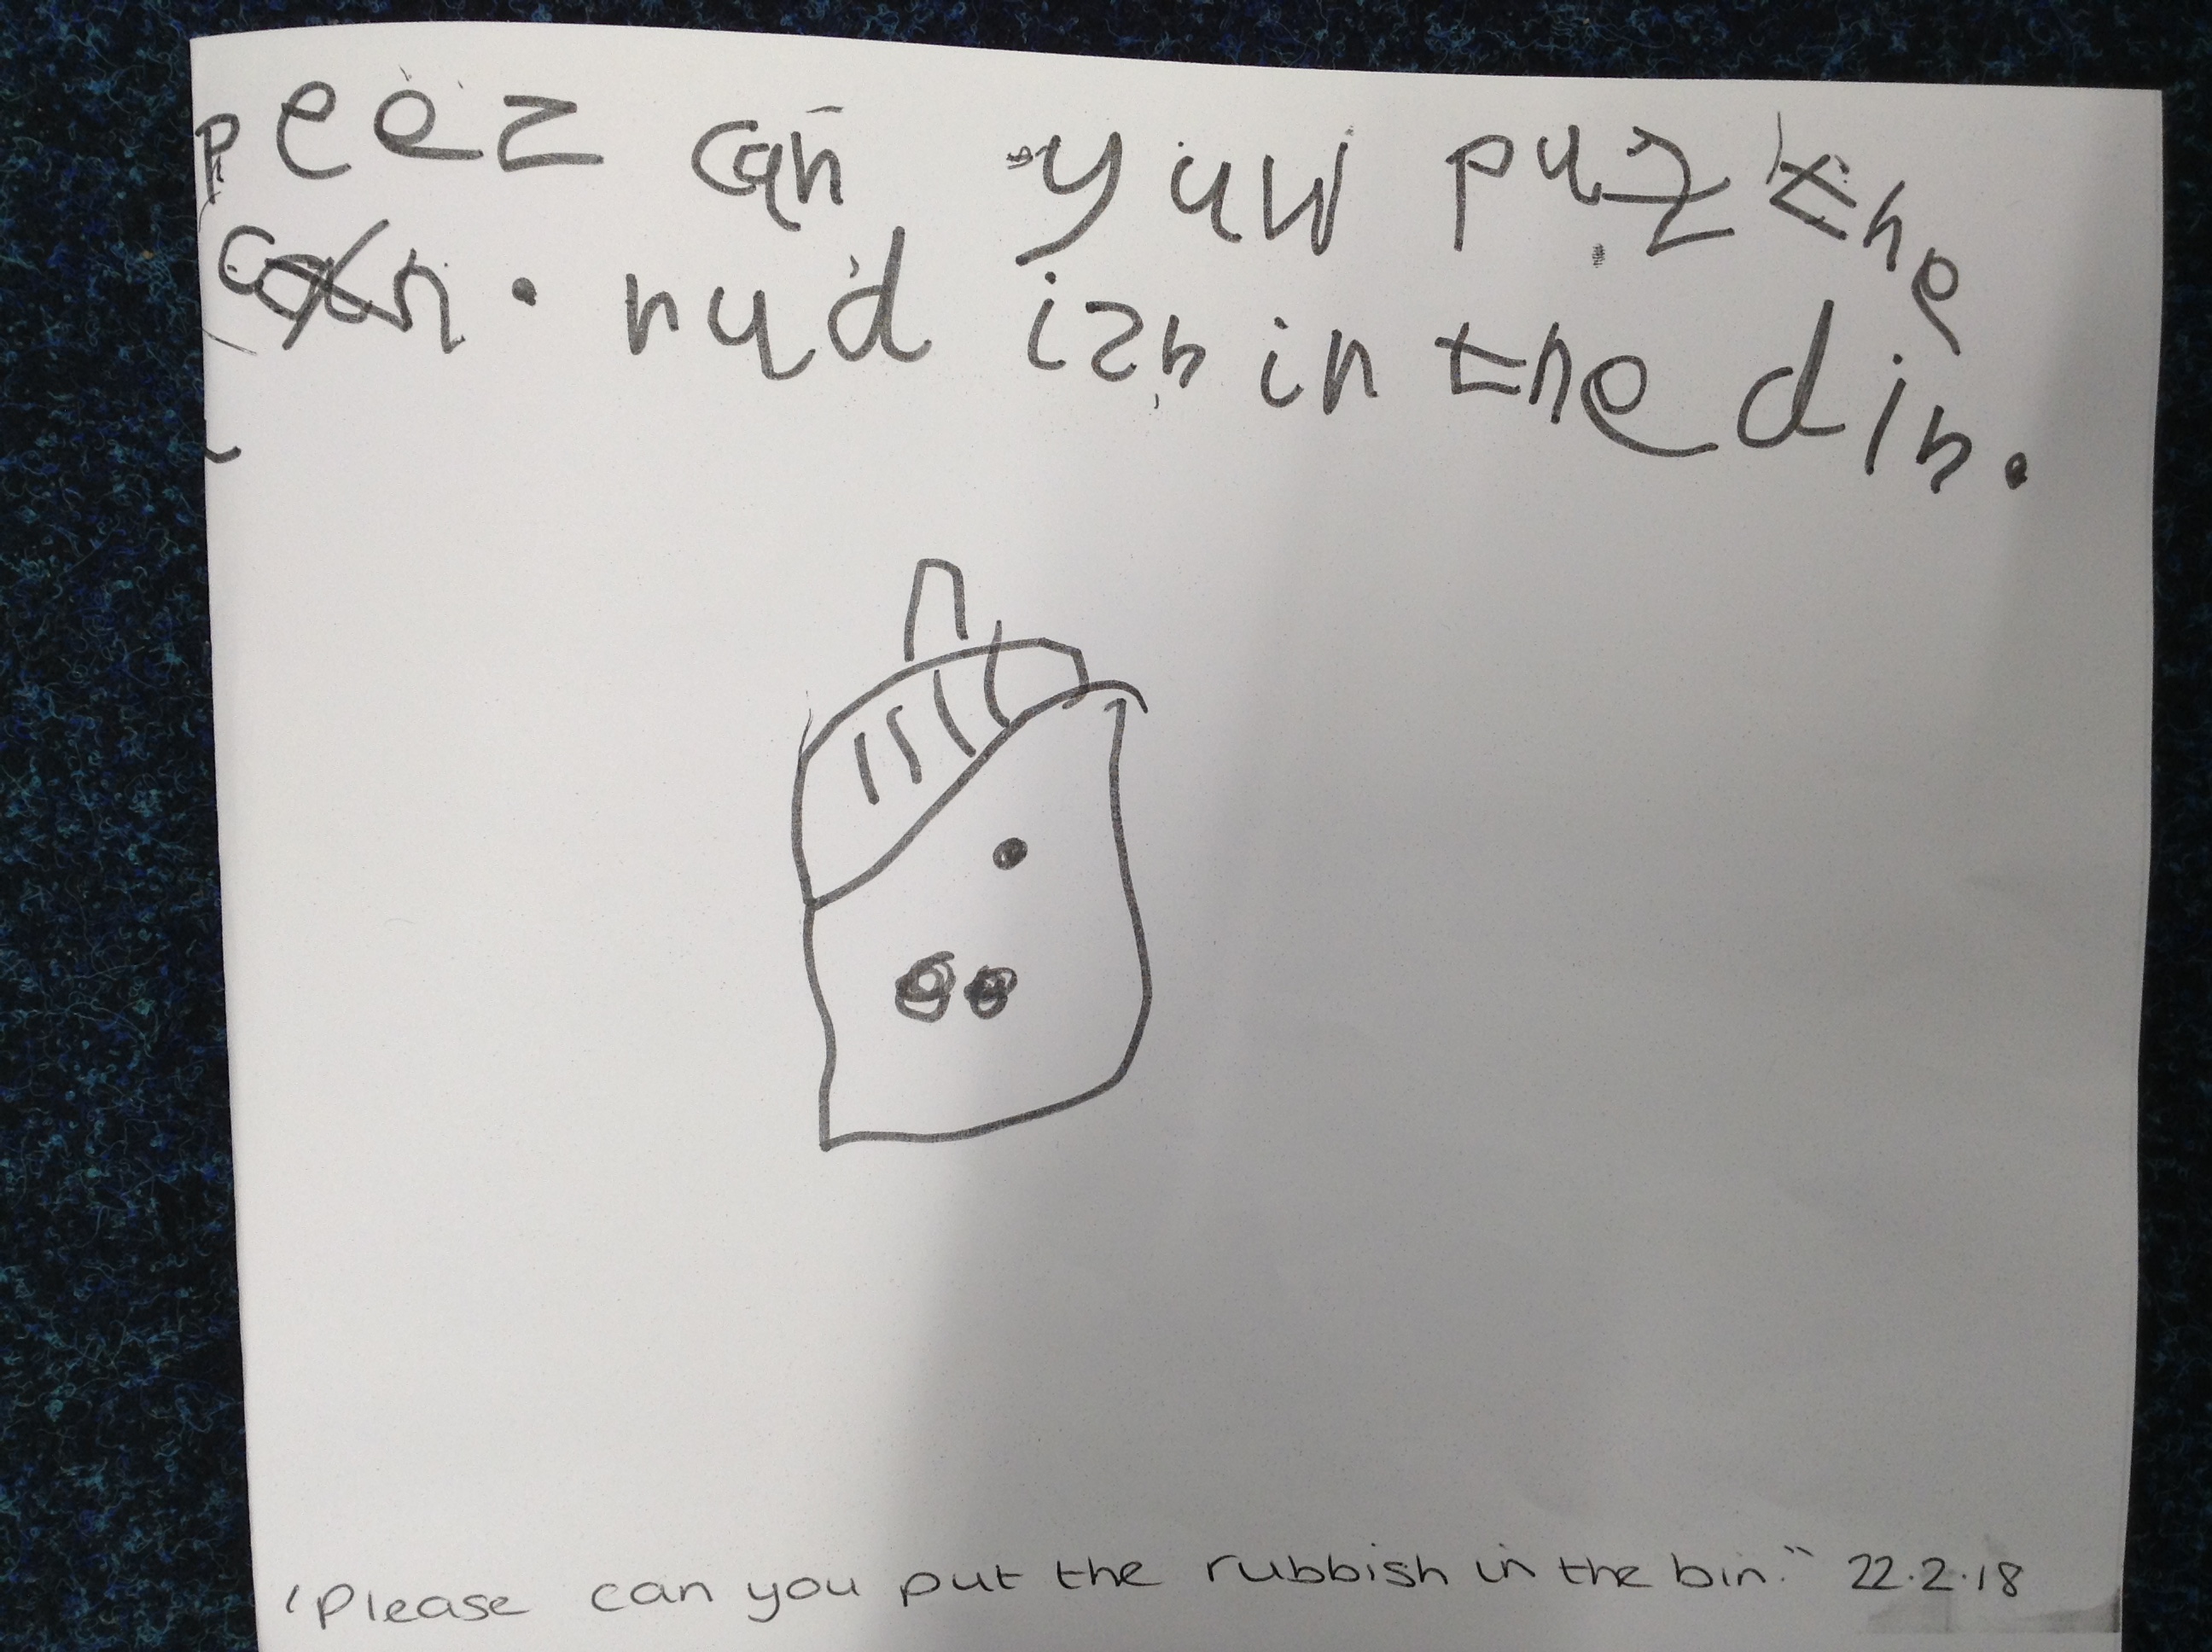 peez can yuw put the
can. rud izh in the din.
"Please can you put the rubbish in the bin." 22.2.18